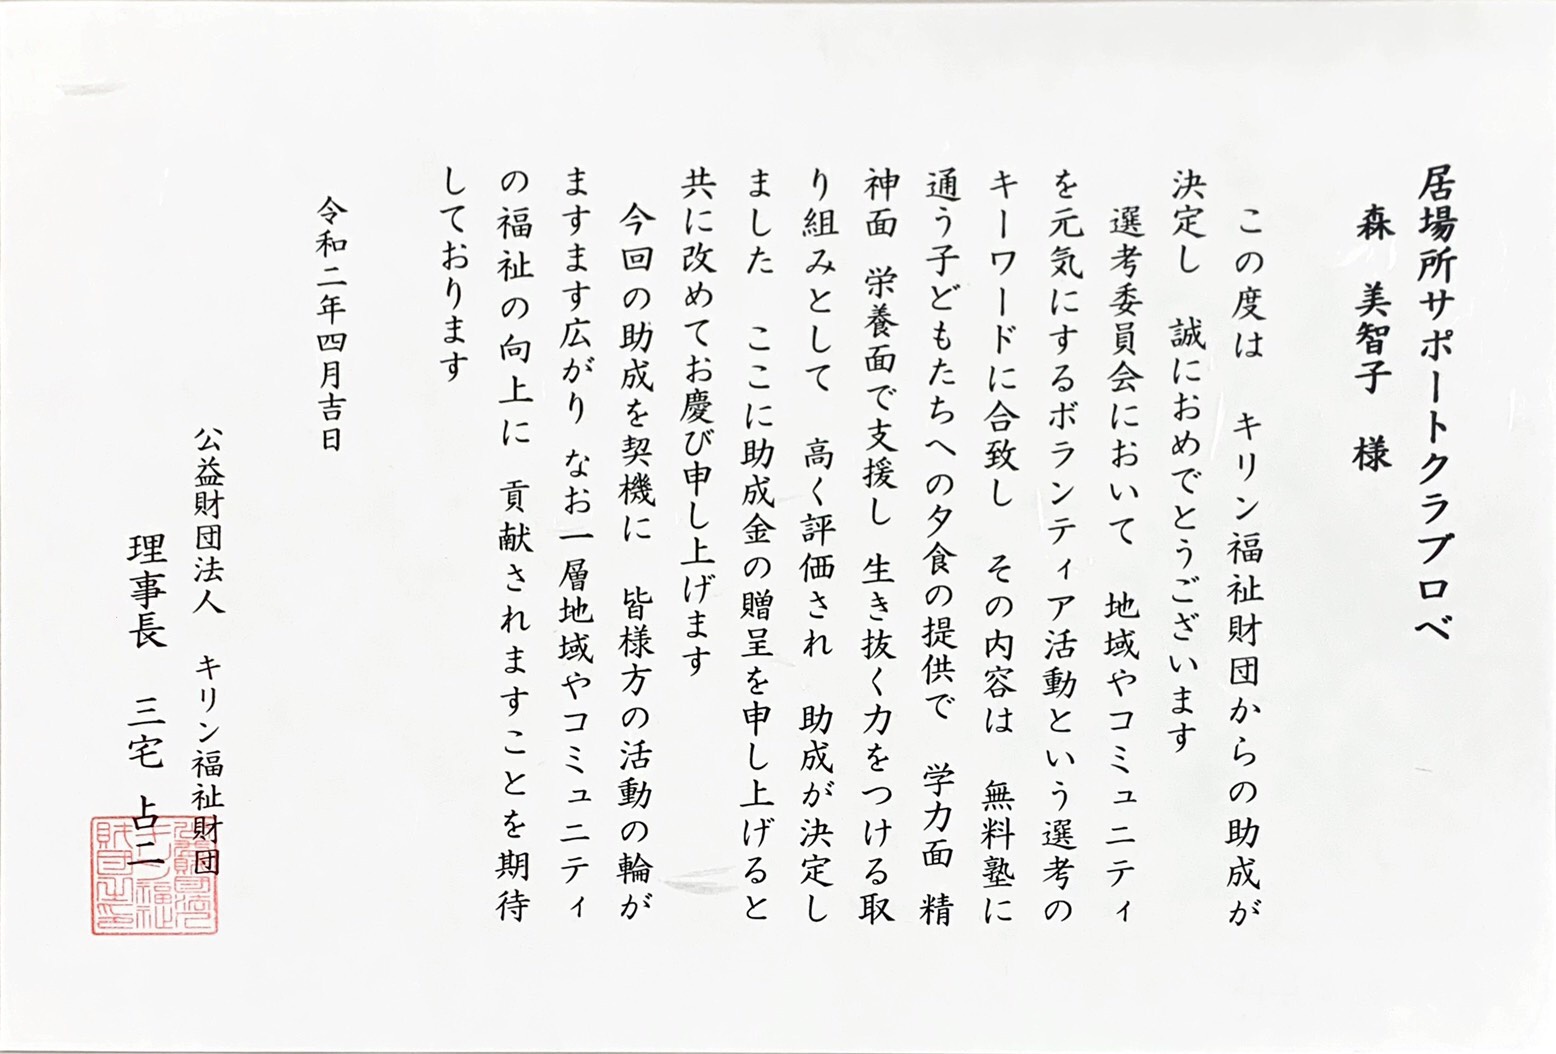 居場所サポートクラブロベ
森　美智子　様
この度は　キリン福祉財団からの助成が
決定し　誠におめでとうございます
選考委員会において　地域やコミュニティ
を元気にするボランティア活動という選考の
キーワードに合致し　その内容は　無料塾に
通う子どもたちへの夕食の提供で　学力面　精
神面　栄養面で支援し　生き抜く力をつける取
り組みとして　高く評価され　助成が決定し
ました　ここに助成金の贈呈を申し上げると
共に改めてお慶び申し上げます
今回の助成を契機に　皆様方の活動の輪が
ますます広がり　なお一層地域やコミュニティ
の福祉の向上に　貢献されますことを期待
しております
令和二年四月吉日
公益財団法人　キリン福祉財団
理事長　三宅　占二